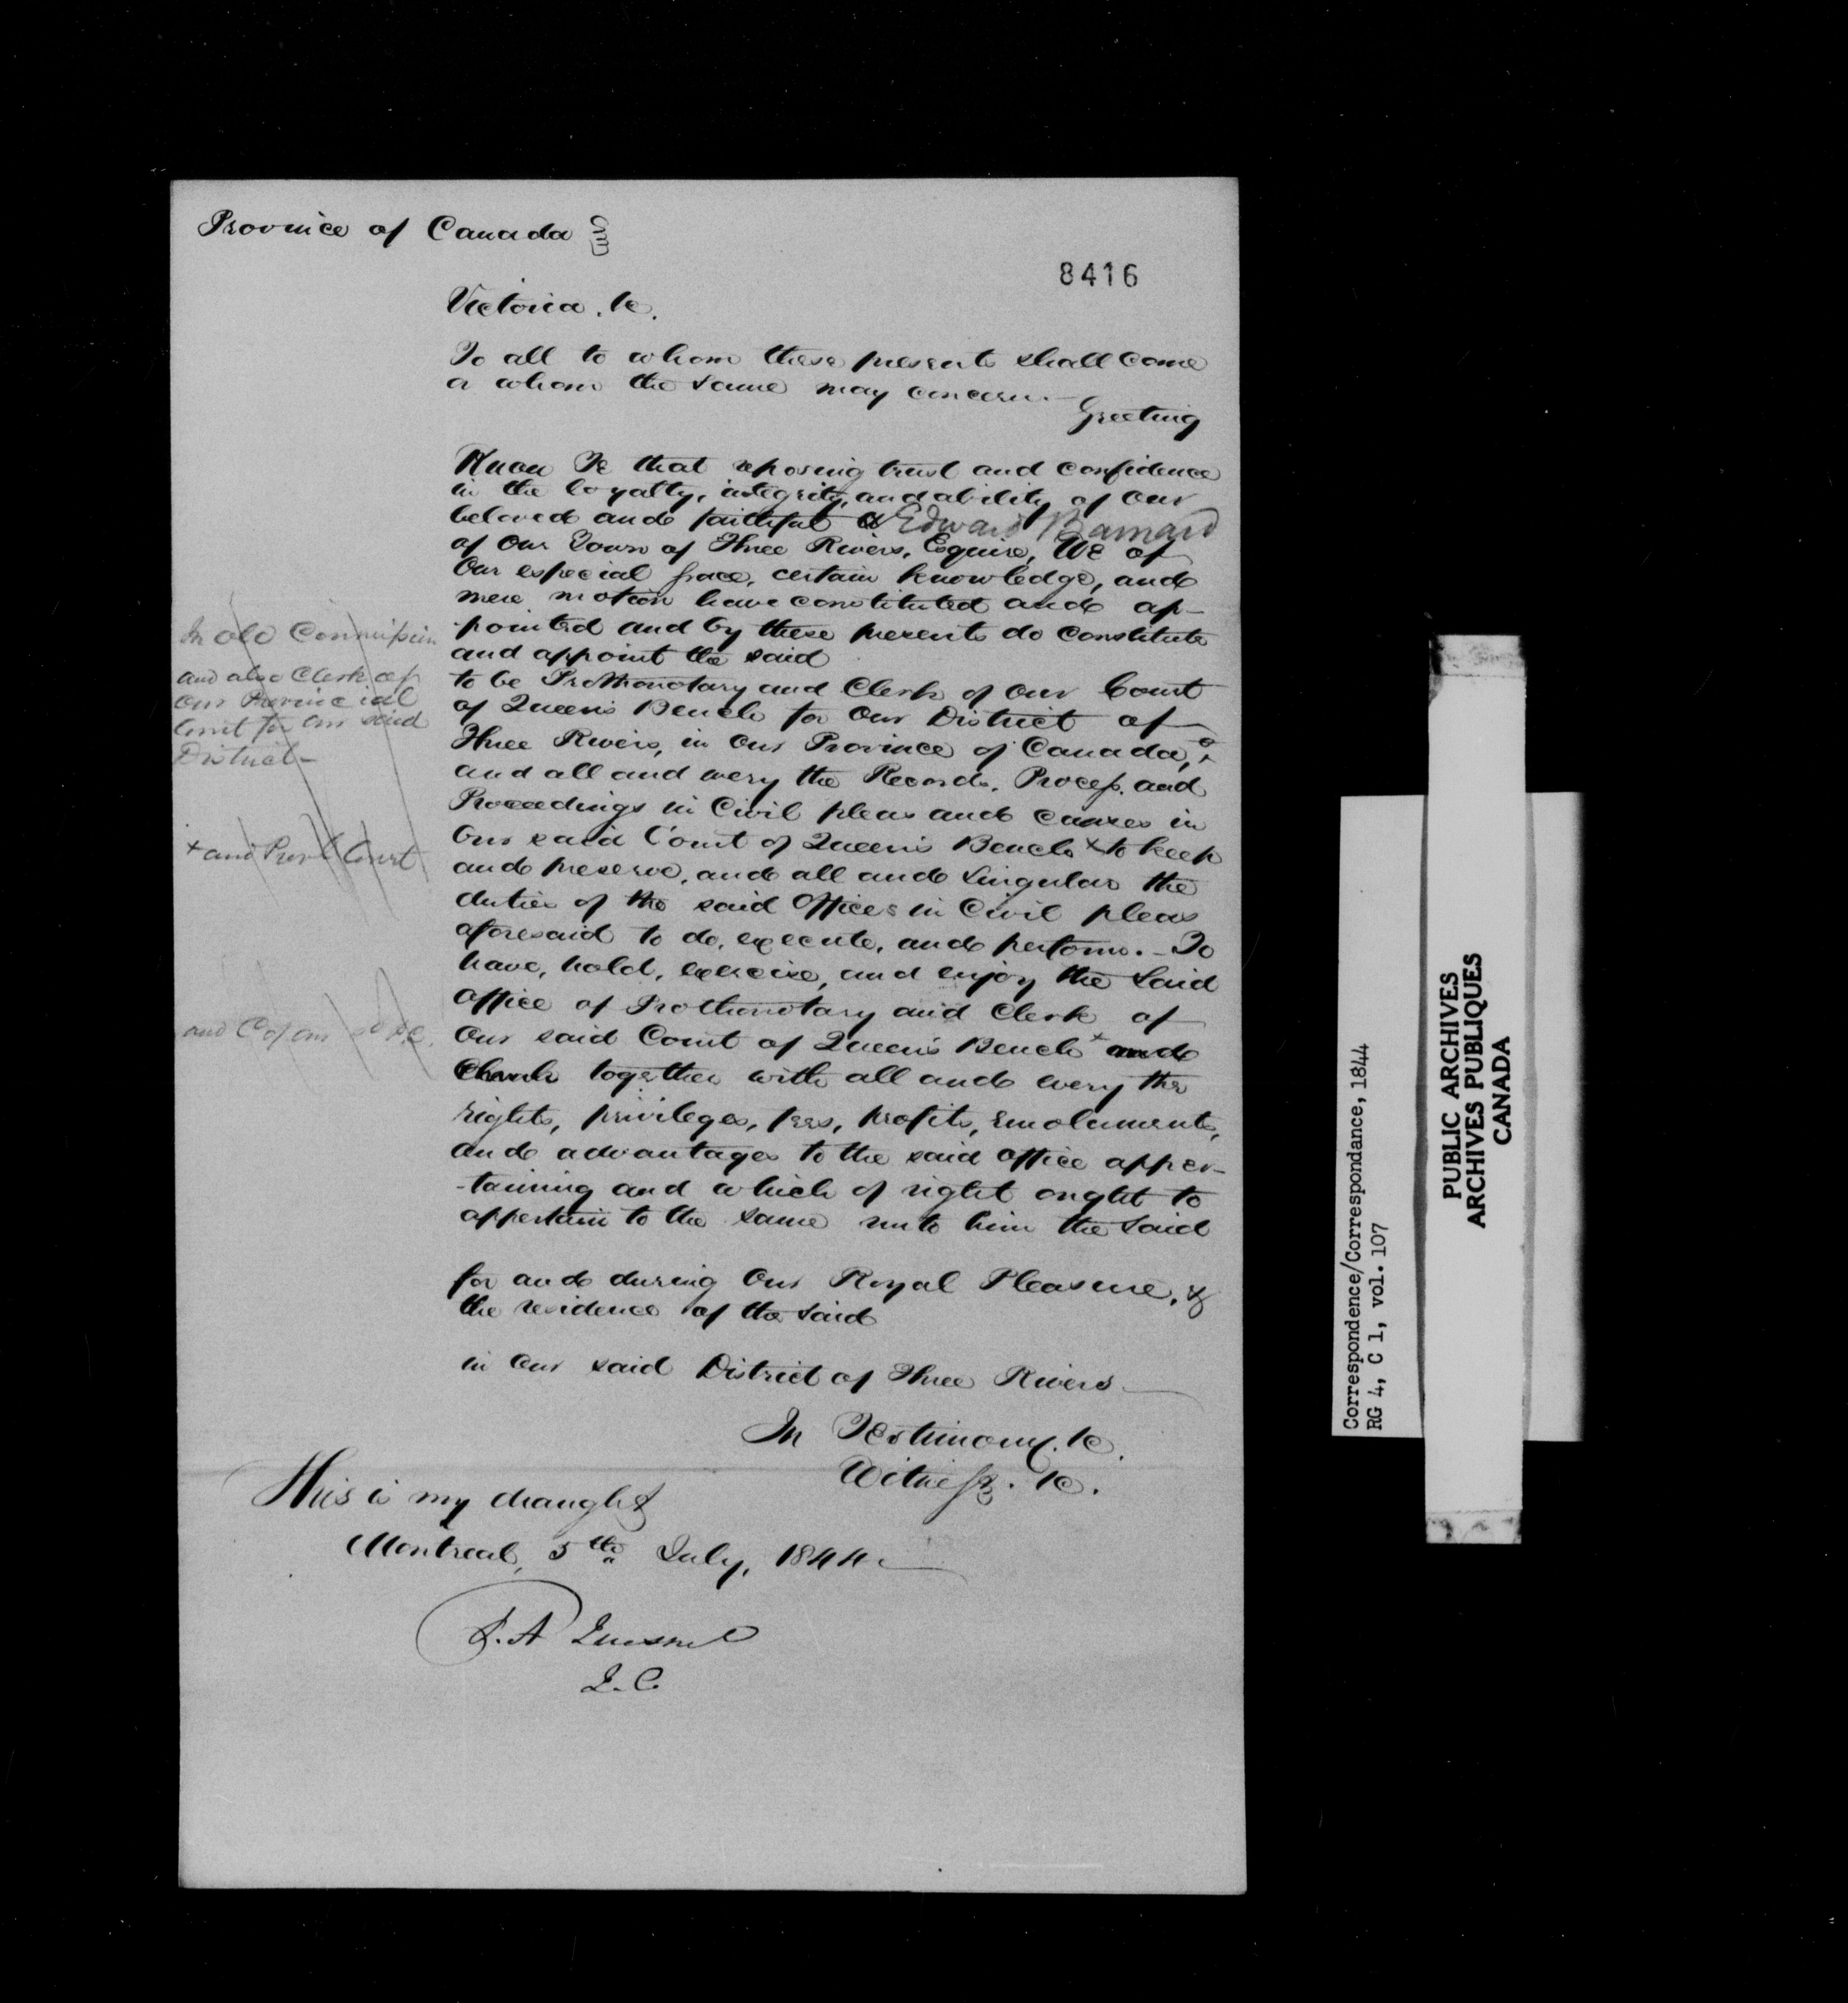 Province of Canada
8416
Victoria. &c.
To all to whom these presents shall come
or whom the same may concern. —
Greeting
Know Ye that reposing trust and confidence
in the loyalty, integrity, and ability of Our
beloved and faithful Edward Barnard
of Our Town of Three Rivers, Esquire, We of
Our especial grace, certain knowledge, and
mere motion have constituted and ap-
-pointed and by these presents do constitute
and appoint the said
to be Prothonotary and Clerk of Our Court
of Queen's Bench for Our District of
Three Rivers, in Our Province of Canada, x
and all and every the Records, Process, and
Proceedings in Civil pleas and causes in
Our said Court of Queen's Bench x to keep
and preserve, and all and singular the
duties of the said Offices in Civil pleas
aforesaid to do, execute, and perform. — To
have, hold, exercise, and enjoy the said
Office of Prothonotary and Clerk of
Our said Court of Queen's Bench x and
together with all and every the
rights, privileges, fees, profits, emoluments,
and advantages to the said Office apper-
-taining and which of right ought to
appertain to the same unto him the said
for and during Our Royal Pleasure, &
the residence of the said
in Our said District of Three Rivers —
In Testimony. &c.
Witness. &c.
In old Commission
and also Clerk of
our Provincial
Court for our said
District —
x and Provl Court
and C of our sd P.C.
This is my draught
Montreal, 5th July, 1844 —
F. A Quesnel
Q. C.
Correspondence/Correspondance, 1844
RG 4, C 1, vol. 107
PUBLIC ARCHIVES
ARCHIVES PUBLIQUES
CANADA